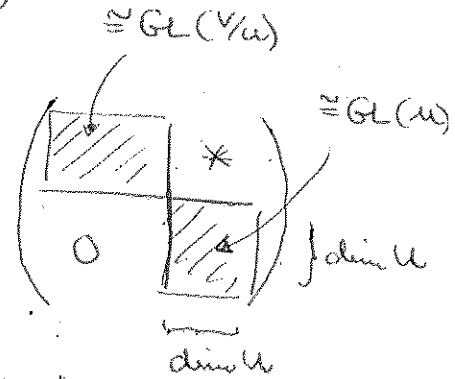 ≅ GL(V/U)
≅ GL(U)
*
0
} dim U
dim U